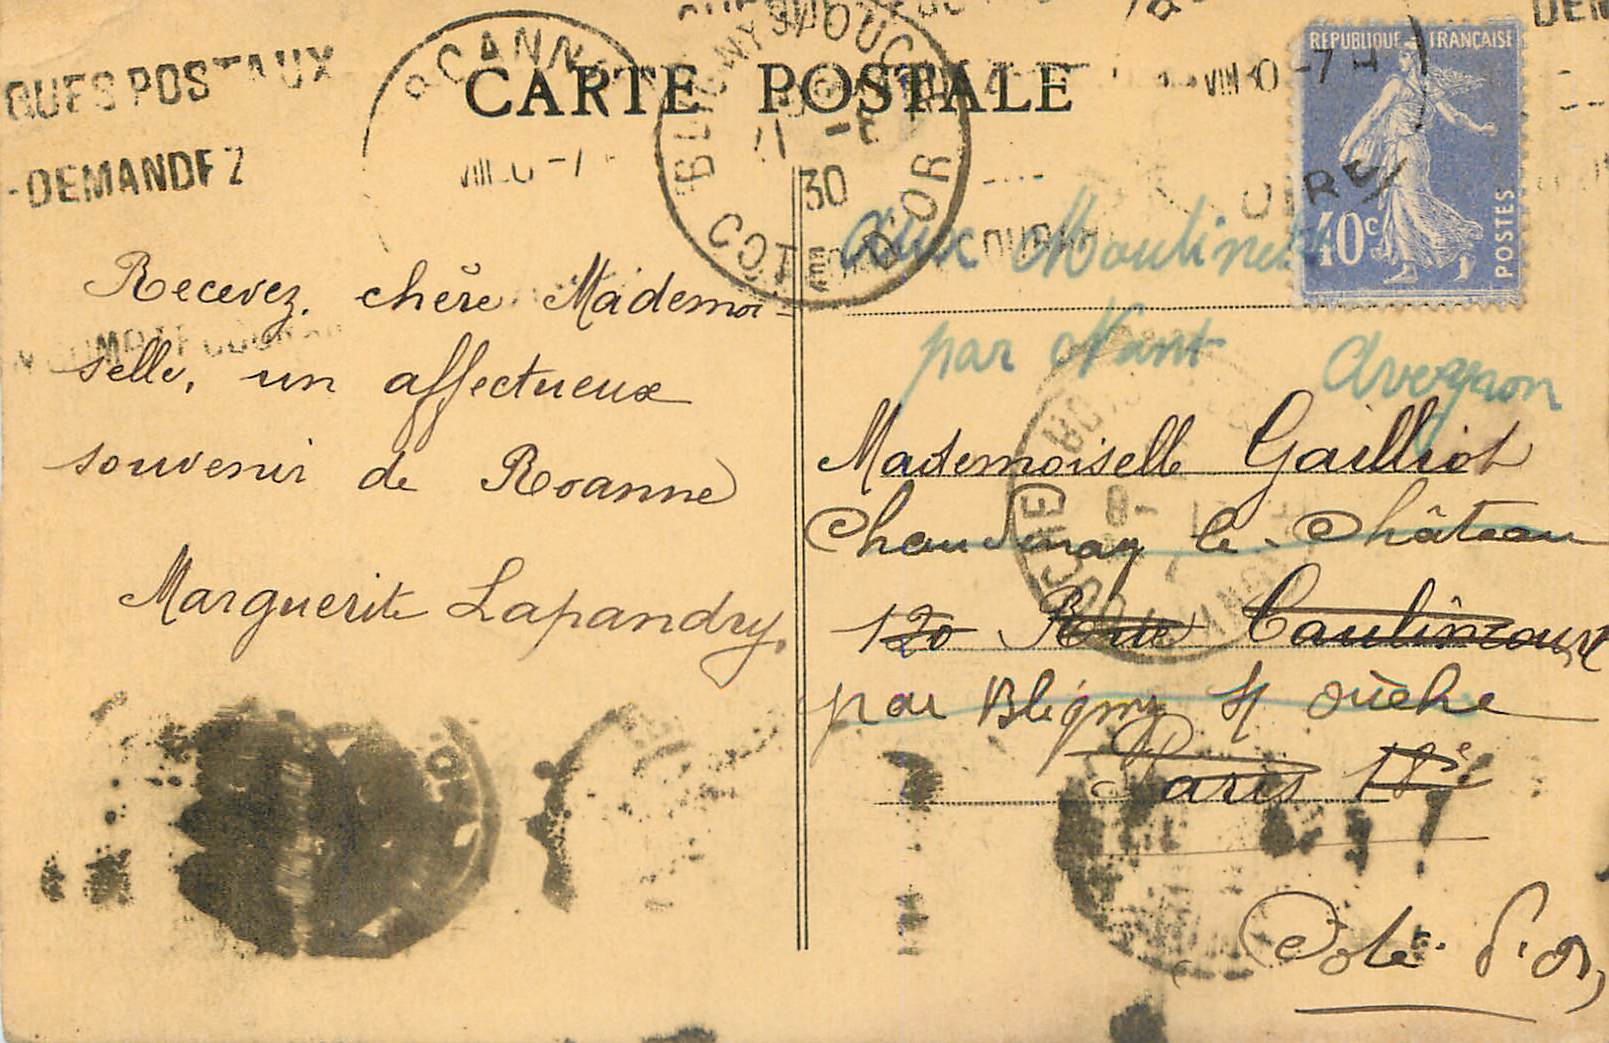 QUES POSTAUX
-DEMANDEZ
ROANNE
CARTE POSTALE
BLIGNY S/ OUCHE
30
COTE D'OR
RÉPUBLIQUE FRANÇAISE
40c
POSTES
Recevez, chère Mademoi-
selle, un affectueux
souvenir de Roanne
Marguerite Lapandry.
aux Moulinets
par Nant Aveyron
Mademoiselle Gailliot
Chaudenay le Château
120 Rue Caulincourt
par Bligny s/ ouche
Paris 18e
Côte d'or,